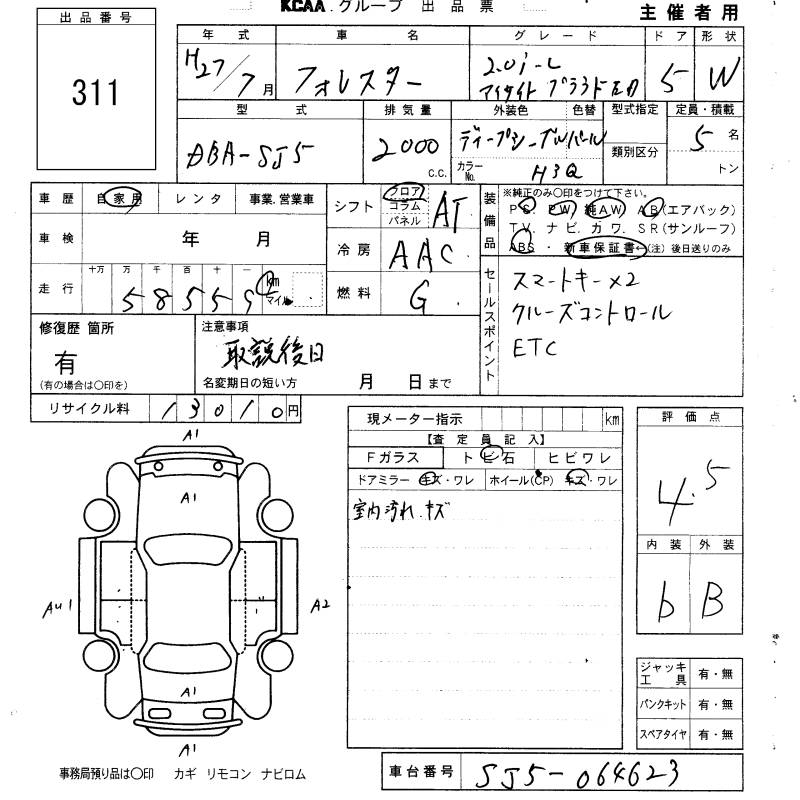 KCAA.グループ 出品票
主催者用
出品番号
311
年式 車名 グレード ドア 形状
H27/7月 フォレスター 2.0i-L 5 W
アイサイト
型式 排気量 外装色 色替 型式指定 定員・積載
DBA-SJ5 2000 c.c. ディープシーブルパール 類別区分 5名
カラーNo. H3Q トン
車歴 自家用 レンタ 事業.営業車
車検 年 月
走行 十万 万 千 百 十 一
58559 km マイル
シフト フロア コラム パネル AT
冷房 AAC
燃料 G
装備品
※純正のみ〇印をつけて下さい。
PS. PW. 純AW. AB(エアバック)
TV. ナビ. カワ. SR(サンルーフ)
ABS ・ 新車保証書←(注) 後日送りのみ
セールスポイント
スマートキー×2
クルーズコントロール
ETC
修復歴 箇所
有
(有の場合は〇印を)
注意事項
取説後日
名変期日の短い方 月 日まで
リサイクル料 13010円
現メーター指示 km
【査定員記入】
Fガラス トビ石 ヒビワレ
ドアミラー キズ・ワレ ホイール(CP) キズ・ワレ
室内汚れ.キズ
評価点
4.5
内装 外装
b B
A1
A1
AU1
A2
A1
A1
ジャッキ工具 有・無
パンクキット 有・無
スペアタイヤ 有・無
事務局預り品は〇印 カギ リモコン ナビロム
車台番号 SJ5-064623